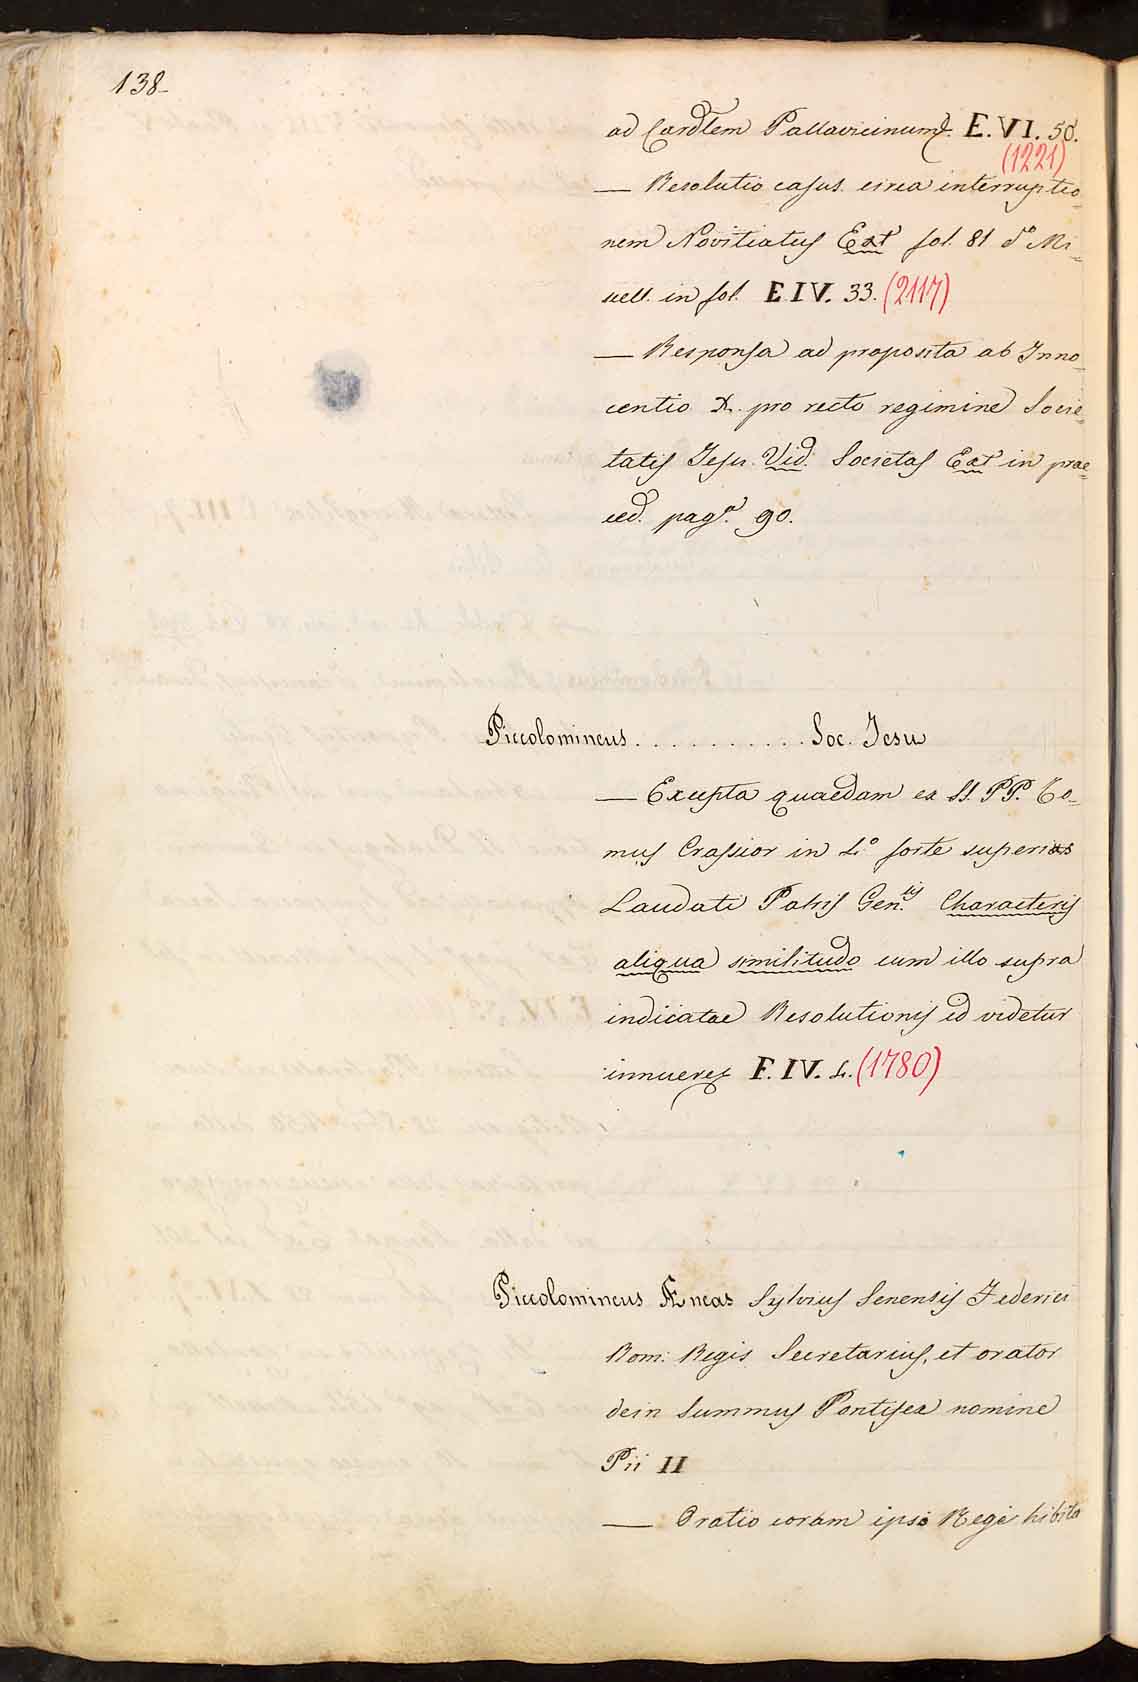 138
ad Cardlem Pallavicinum. E. VI. 50.
(1221)
— Resolutio casus circa interruptio=
nem Novitiatus Ext fol. 81 do Mi=
scell. in fol. E IV. 33. (2117)
— Responsa ad proposita ab Inno=
centio X. pro recto regimine Socie=
tatis Jesu. Vid. Societas Ext in prae=
ced. pag.a 90.
Piccolomineus . . . . . . . . . . . Soc. Jesu
— Excepta quaedam ex SS. PP. To=
mus Crassior in 4.o forte superius
Laudati Patris Gen.lis Characteris
aliqua similitudo cum illo supra
indicatae Resolutionis id videtur
innuere F. IV. 4. (1780)
Piccolomineus Æneas Sylvius Senensis Federici
Rom: Regis Secretarius, et orator
dein Summus Pontifex nomine
Pii II
— Oratio coram ipso Rege habita